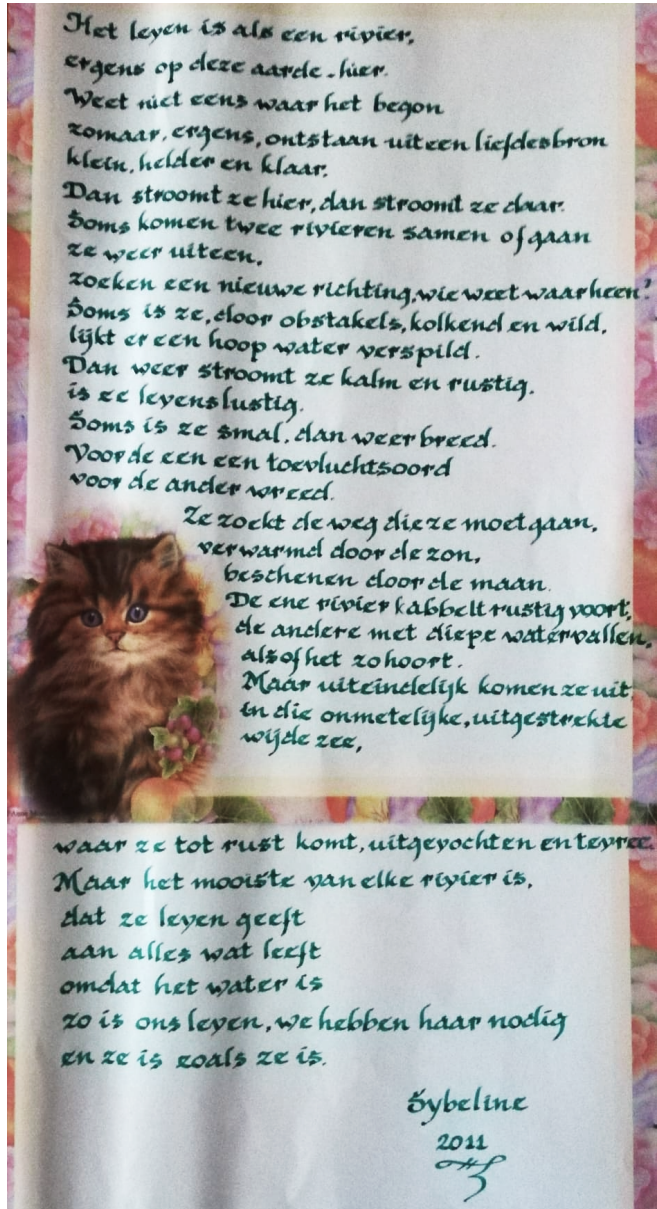 Het leven is als een rivier,
ergens op deze aarde - hier.
Weet niet eens waar het begon
zomaar, ergens, ontstaan uit een liefdesbron
klein, helder en klaar.
Dan stroomt ze hier, dan stroomt ze daar.
Soms komen twee rivieren samen of gaan
ze weer uiteen,
zoeken een nieuwe richting, wie weet waarheen?
Soms is ze, door obstakels, kolkend en wild,
lijkt er een hoop water verspild.
Dan weer stroomt ze kalm en rustig,
is ze levenslustig.
Soms is ze smal, dan weer breed.
Voor de een een toevluchtsoord
voor de ander wreed.
Ze zoekt de weg die ze moet gaan,
verwarmd door de zon,
beschenen door de maan.
De ene rivier kabbelt rustig voort,
de andere met diepe watervallen,
alsof het zo hoort.
Maar uiteindelijk komen ze uit,
in die onmetelijke, uitgestrekte
wijde zee,
waar ze tot rust komt, uitgevochten en tevree.
Maar het mooiste van elke rivier is,
dat ze leven geeft
aan alles wat leeft
omdat het water is
zo is ons leven, we hebben haar nodig
en ze is zoals ze is.
Sybeline
2011